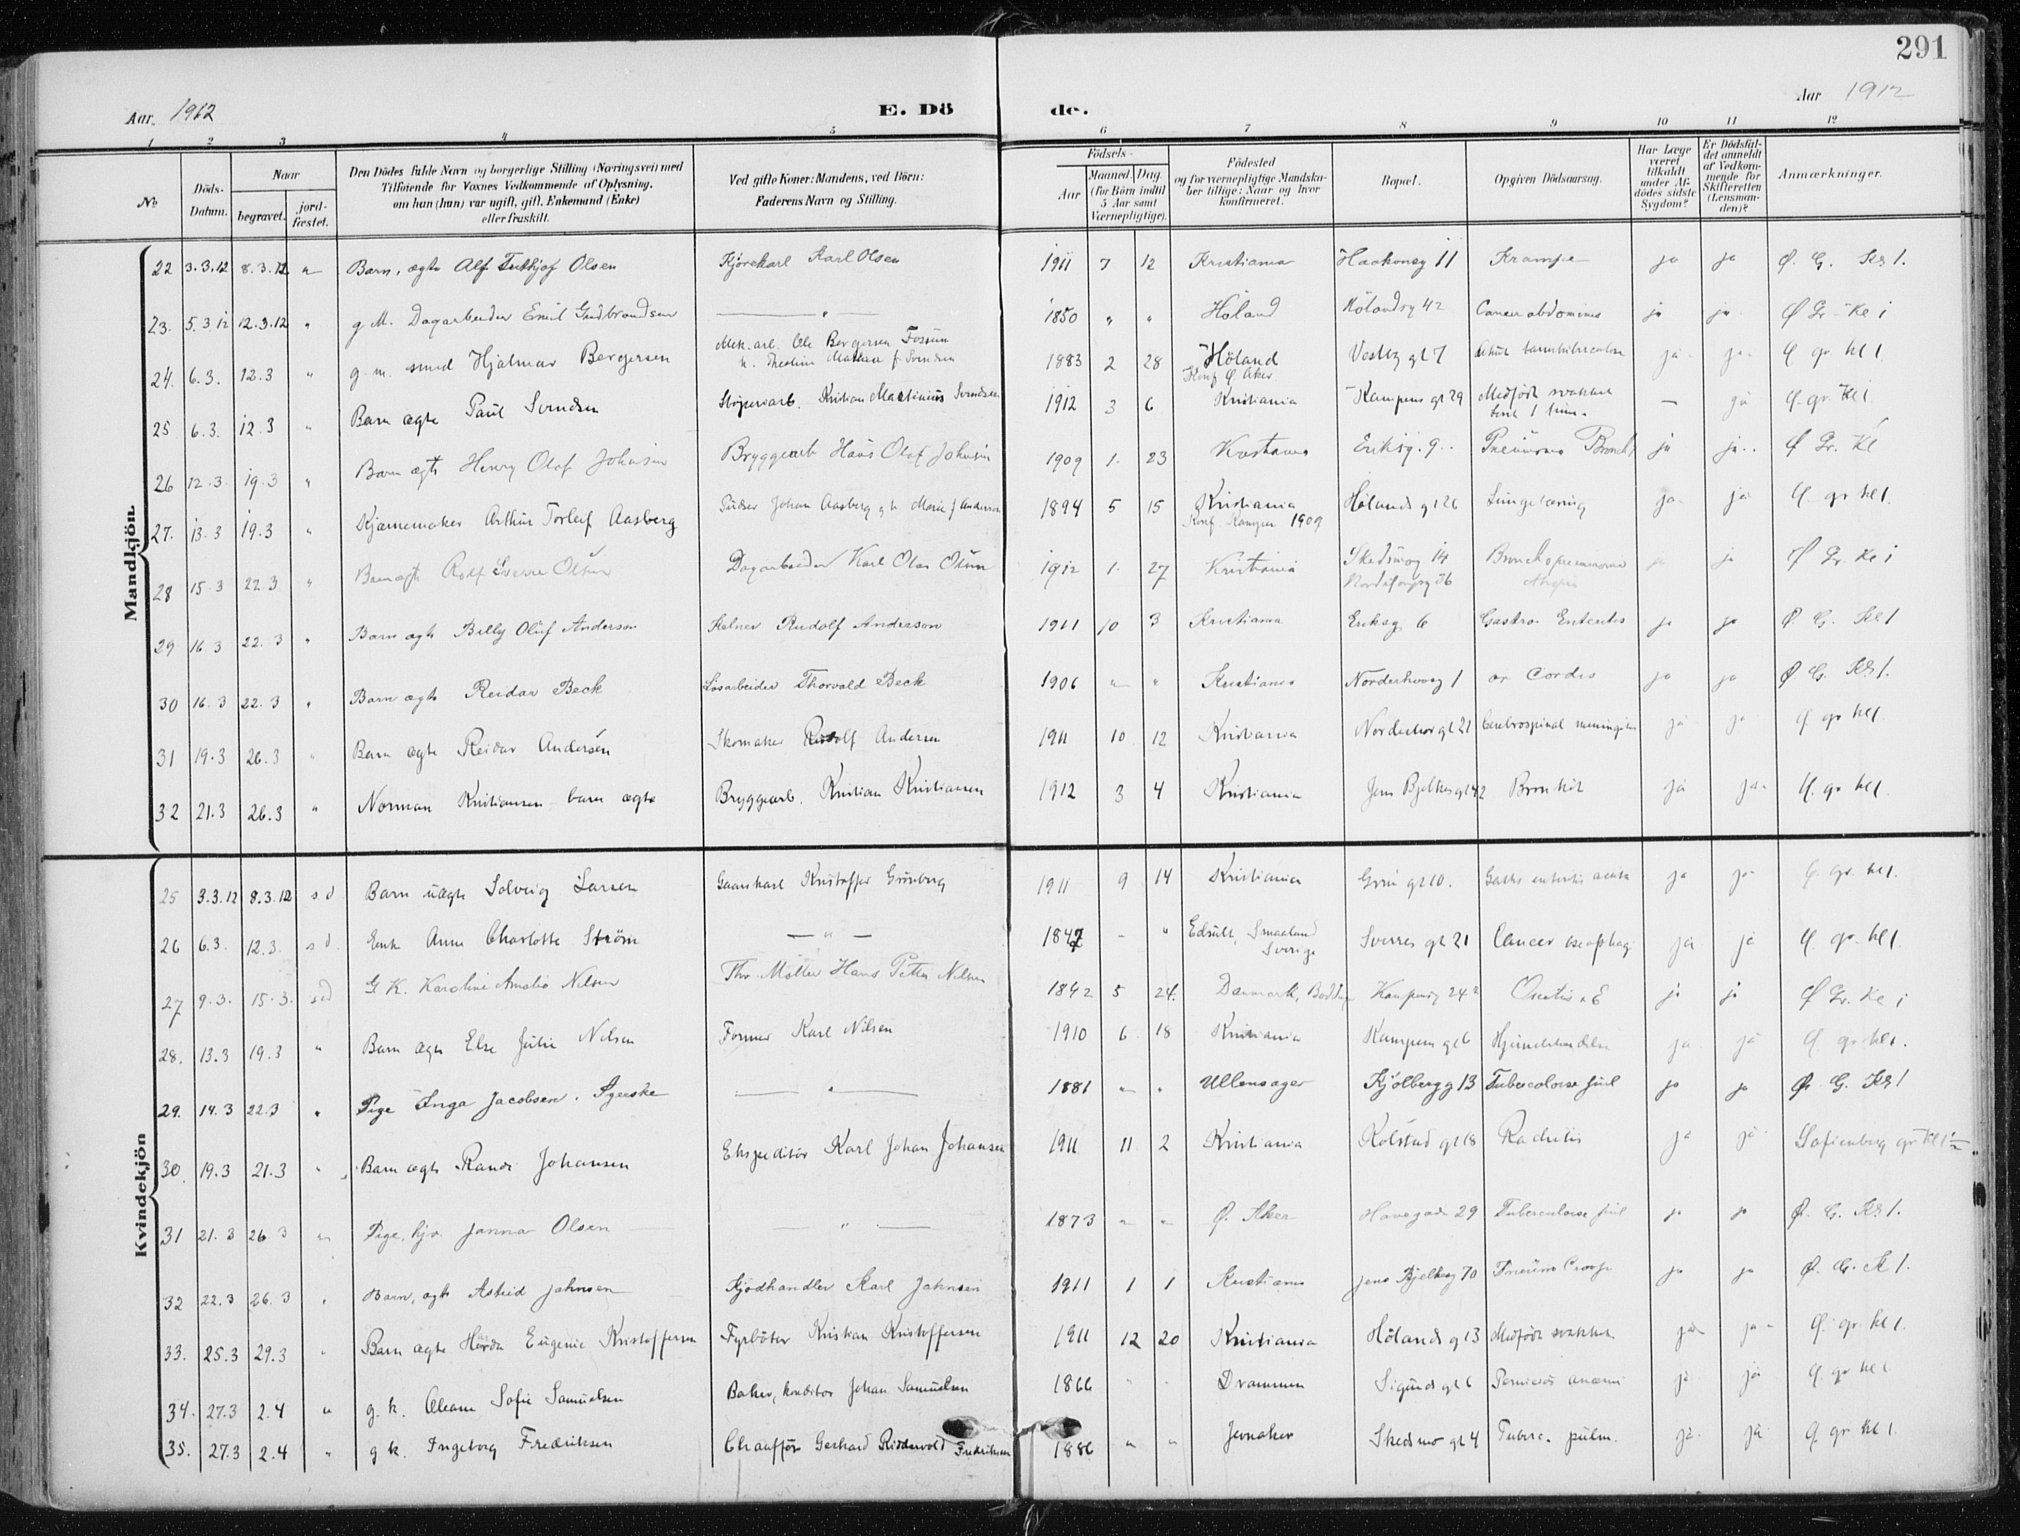 291
Aar 1912 E. Dö de. Aar 1912
1 2 3 4 5 6 7 8 9 10 11 12
No
Döds-Datum.
Naar
begravet. jord-fæstet.
Den Dödes fulde Navn og borgerlige Stilling (Næringsvei) med
Tilföiende for Voxnes Vedkommende af Oplysning,
om han (hun) var ugift, gift, Enkemand (Enke)
eller fraskilt.
Ved gifte Koner: Mandens, ved Börn:
Faderens Navn og Stilling.
Födsels-
Aar Maaned. Dag.
(for Börn indtil
5 Aar samt
Værnepligtige).
Födested
og for værnepligtige Mandska-
ber tillige: Naar og hvor
konfirmeret.
Bopæl.
Opgiven Dödsaarsag.
Har Læge
været
tilkaldt
under Af-
dödes sidste
Sygdom?
Er Dödsfal-
det anmeldt
af Vedkom-
mende for
Skifteretten
(Lensman-
den)?
Anmærkninger.
Mandkjön.
22 3.3.12 8.3.12 Barn, ægte Alf Olsen Kjørekarl Karl Olsen 1911 7 12 Kristiania Haakonsg 11 Krampe ja ja Ø. G. Kl 1.
23. 5.3.12 12.3.12 " g.M. Dagarbeider Emil Gudbrandsen — " — 1850 " " Høland Hølandsg 42 Cancer abdominis ja ja Ø Gr. Kl 1
24. 6.3. 12.3 " g.m. smed Hjalmar Bergersen Mek. arb. Ole Bergersen Fossum 1883 2 28 Høland Vestby gt 7 ja ja Ø gr. kl 1.
Konf Ø Aker.
25 6.3. 12.3 " Barn ægte Paul Svendsen Støperiarb. Kristian Martinius Svendsen 1912 3 6 Kristiania Kampens gt 29 Medfødt svakhet — ja Ø. gr. Kl 1.
26 12.3. 19.3 " Barn ægte Henry Olaf Johnsen Bryggearb Hans Olaf Johnsen 1909 1. 23 Kristiania Eriksg. 9 ja ja Ø Gr. Kl
27. 13.3 19.3 " Arthur Torleif Aasberg Pudser Johan Aasberg g h Marie f Anderson 1894 5 15 Kristiania Hølands gt 26 Lungetæring ja ja Ø. gr kl 1.
Konf. Kampen 1909
28 15.3 22.3 " Barn ægte Rolf Sverre Olsen Dagarbeider Karl Olsen 1912 1. 27 Kristiania Skedsmog 14 ja ja Ø Gr. Kl 1
29 16.3 22.3 " Barn ægte Billy Oluf Anderson Kelner Rudolf Anderson 1911 10 3 Kristiania Eriksg 6 Gastro-Enteritis ja ja Ø. G. Kl 1
30 16.3 22.3 " Barn ægte Reidar Beck Løsarbeider Thorvald Beck 1906 " " Kristiania Norderhovsg 1 Cordis ja ja Ø. G. Kl 1.
31 19.3 26.3 " Barn ægte Reidar Andersen Skomaker Rudolf Andersen 1911 10 12 Kristiania Norderhov gt 21 Cerebrospinal meningitis ja ja Ø. gr kl 1
32 21.3 26.3 " Norman Kristiansen barn ægte Bryggearb. Kristian Kristiansen 1912 3 4 Kristiania Jens Bjelkes gt 42 Bronkit ja ja Ø. gr kl 1.
Kvindekjön
25 3.3.12 8.3.12 s d Barn uægte Solveig Larsen Gaardskarl Kristoffer Grünberg 1911 9 14 Kristiania gt 10. enteritis acuta ja ja Ø. gr. kl 1.
26 6.3. 12.3. s d. Enke Anne Charlotte Strøm — " — 1847 - " Smaaland Sverige Sverres gt 21 Cancer ja ja Ø. gr. kl 1.
27 9.3. 15.3. s d G K. Karoline Amalie Nilsen Hans Petter Nilsen 1842 5 24. Danmark, Kampensg 24 ja ja Ø Gr. Kl 1
28. 13.3 19.3 " Barn ægte Else Julie Nilsen Former Karl Nilsen 1910 6 18 Kristiania Kampens gt 6 ja ja Ø gr kl 1.
29. 14.3 22.3 " Pige Inga Jacobsen. — " — 1881 " " Ullensager Kjølbergg 13 ja ja Ø. G. Kl 1
30. 19.3 21.3 " Barn ægte Randi Johansen Ekspeditør Karl Johan Johansen 1911 11 2 Kristiania Kolstad gt 18 Rachitis ja ja Sofienberg gr kl 1
31 21.3 26.3 " Pige, Janna Olsen — " — 1873 " " Ø. Aker Havegade 29 ja ja Ø. G. Kl 1.
32 22.3 26.3 " Barn, ægte Astrid Jahnsen Kjødhandler Karl Jahnsen 1911 1 1 Kristiania Jens Bjelkesg 70 ja ja Ø. G. Kl 1.
33. 25.3 29.3 " Barn ægte Eugenie Kristoffersen Fyrbøter Kristian Kristoffersen 1911 12 20 Kristiania Hølands gt 13 Medfødt svakhet ja ja Ø. gr. kl 1.
34. 27.3 2.4 " g.k. Sofie Samuelsen Baker, konditor Johan Samuelsen 1866 " " Drammen Sigurds gt 6 ja ja Ø. gr kl 1
35. 27.3 2.4 " g k. Ingeborg Fredriksen Chauffør Gerhard Riddervold Fredriksen 1886 " " Jevnaker Skedsmo gt 4 Tuberc. pulm. ja ja Ø. gr kl 1.